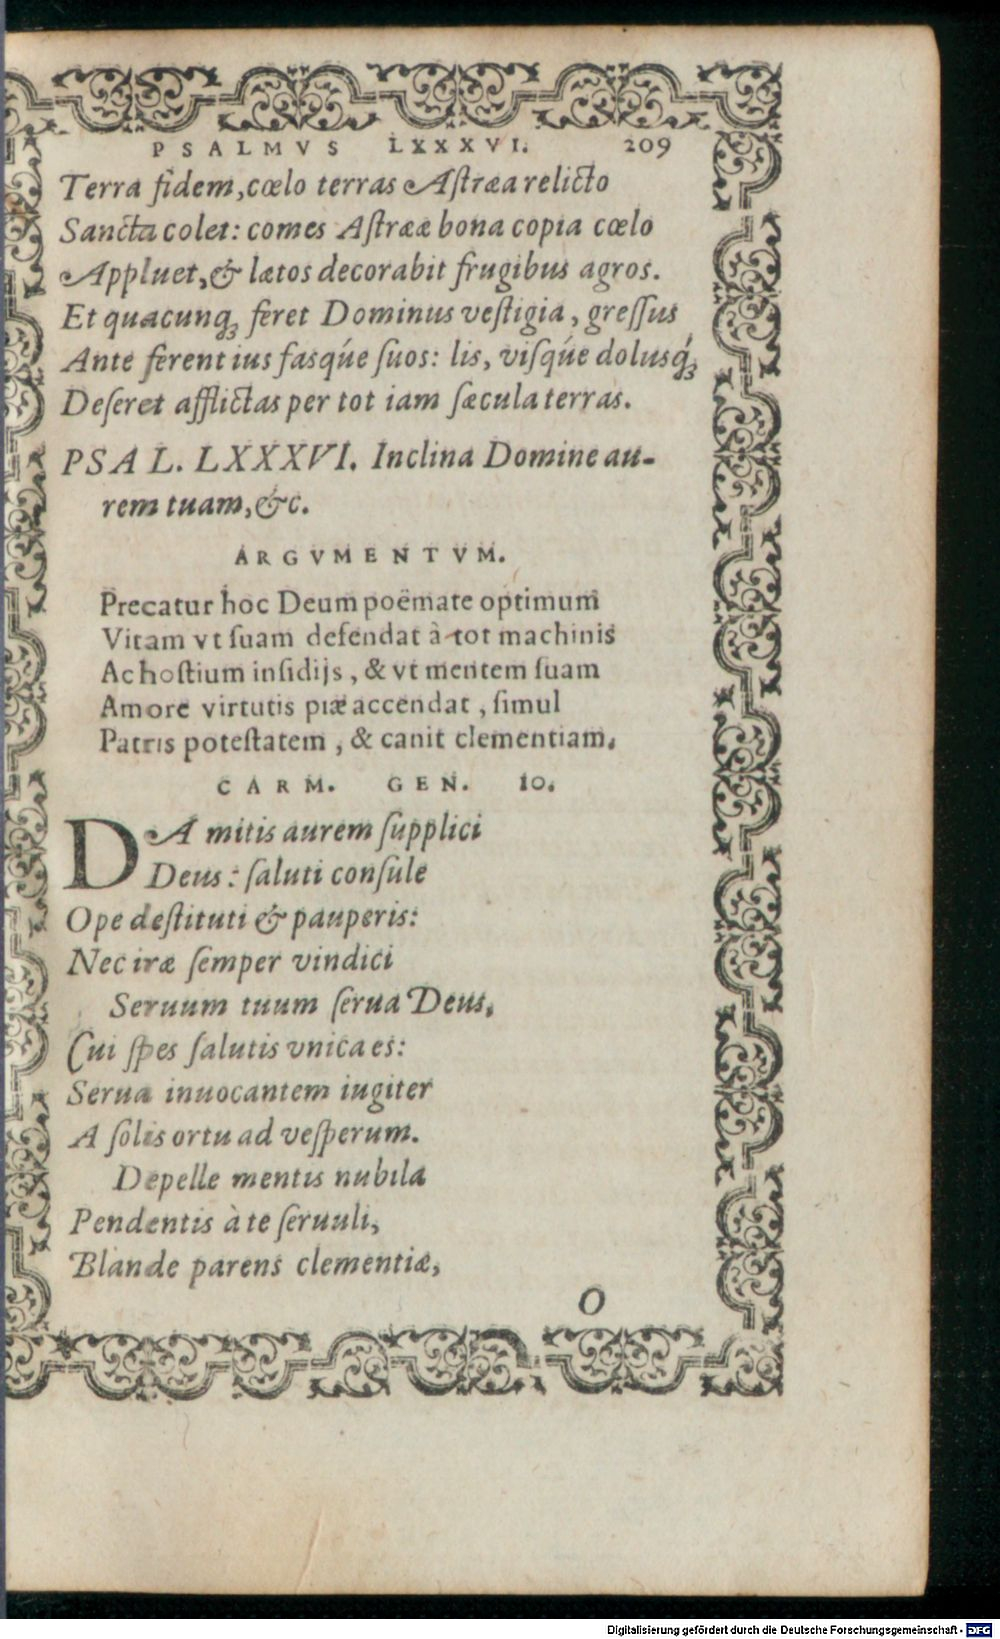 PSALMVS LXXXVI. 209
Terra fidem, cœlo terras Aſtræa relicto
Sancta colet: comes Aſtrææ bona copia cœlo
Appluet, & lætos decorabit frugibus agros.
Et quacunqꝫ feret Dominus veſtigia, greſſus
Ante ferent ius fasqúe ſuos: lis, viſqúe dolusq́ꝫ
Deſeret afflictas per tot iam ſæcula terras.
PSAL. LXXXVI. Inclina Domine au-
rem tuam, &c.
ARGVMENTVM.
Precatur hoc Deum poëmate optimum
Vitam vt ſuam defendat à tot machinis
Ac hoſtium inſidijs, & vt mentem ſuam
Amore virtutis piæ accendat, ſimul
Patris poteſtatem, & canit clementiam.
CARM. GEN. 10.
DA mitis aurem ſupplici
Deus: ſaluti conſule
Ope deſtituti & pauperis:
Nec iræ ſemper vindici
Seruum tuum ſerua Deus,
Cui ſpes ſalutis vnica es:
Serua inuocantem iugiter
A ſolis ortu ad veſperum.
Depelle mentis nubila
Pendentis à te ſeruuli,
Blande parens clementiæ,
O
Digitalisierung gefördert durch die Deutsche Forschungsgemeinschaft - DFG